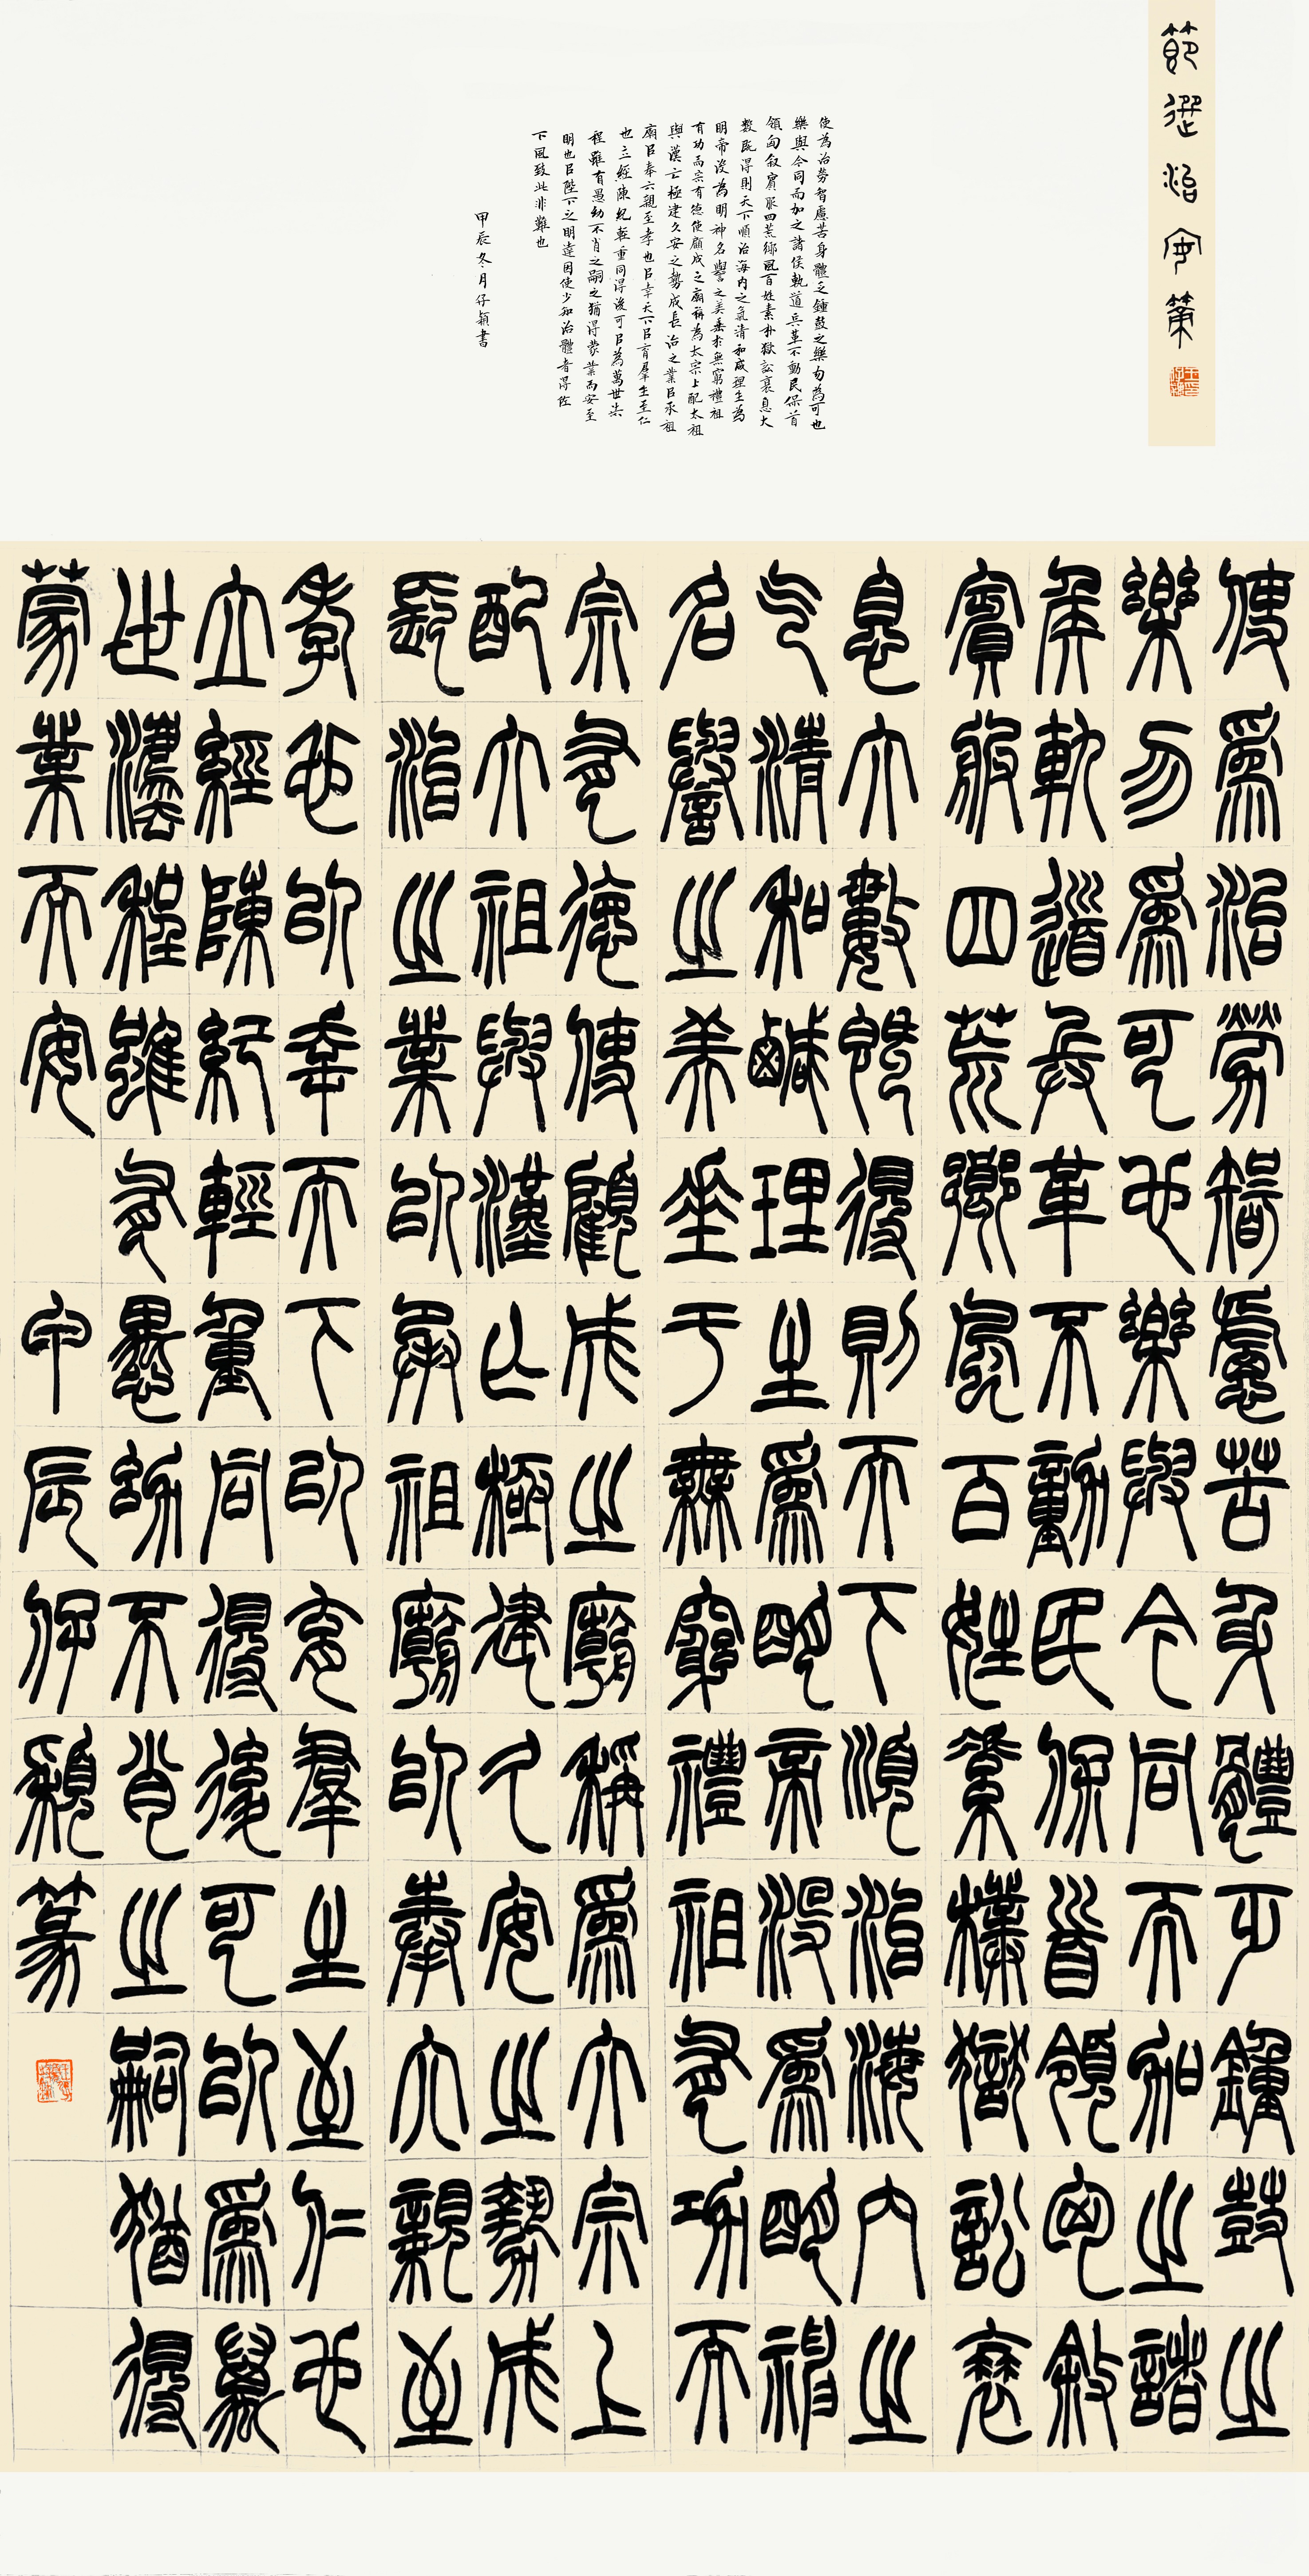 節選治安策
使為治勞智慮苦身體乏鍾鼓之樂勿為可也
樂與今同而加之諸侯軌道兵革不動民保首
領匈敘賓服四荒鄉風百姓素朴獄訟衰息大
數既得則天下順治海內之氣清和咸理生為
明帝沒為明神名譽之美垂於無窮禮祖
有功而宗有德使顧成之廟稱為太宗上配太祖
與漢亡極建久安之勢成長治之業以承祖
廟以奉六親至孝也以幸天下以育羣生至仁
也立經陳紀輕重同得後可以為萬世法
程雖有愚幼不肖之嗣之猶得蒙業而安至
明也以陛下之明達因使少知治體者得佐
下風致此非難也
甲辰冬月仔穎書
使爲治勞智慮苦身體乏鍾鼓之
樂勿爲可也樂與今同而加之諸
侯軌道兵革不動民保首領匈敘
賓服四荒鄉風百姓素樸獄訟衰
息大數既得則天下順治海內之
气清和咸理生爲明帝沒爲明神
名譽之美垂于無窮禮祖有功而
宗有德使顧成之廟稱爲大宗上
配大祖與漢亡極建久安之勢成
長治之業以承祖廟以奉六親至
孝也以幸天下以育羣生至仁也
立經陳紀輕重同得後可以爲萬
世灋程雖有愚幼不肖之嗣猶得
蒙業而安 甲辰仔穎篆